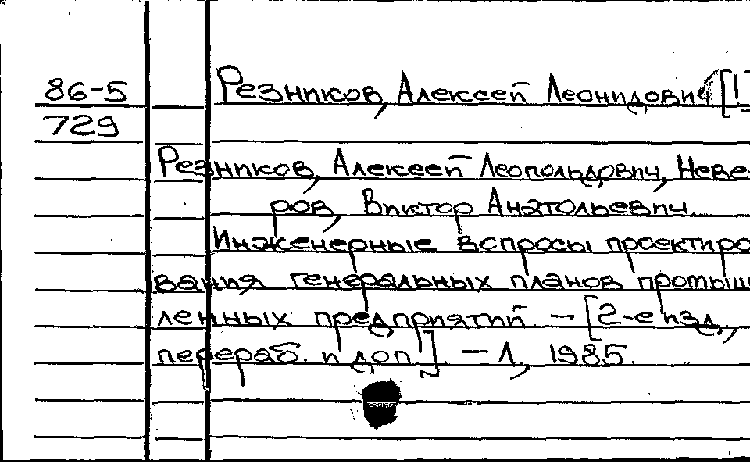 86-5
729
Резников, Алексей Леонидович [1
Резников, Алексей Леопольдович, Неве-
ров, Виктор Анатольевич.
Инженерные вопросы проектиро
вания генеральных планов промыш
ленных предприятий. - [2-е изд.,
перераб. и доп.] - Л, 1985.